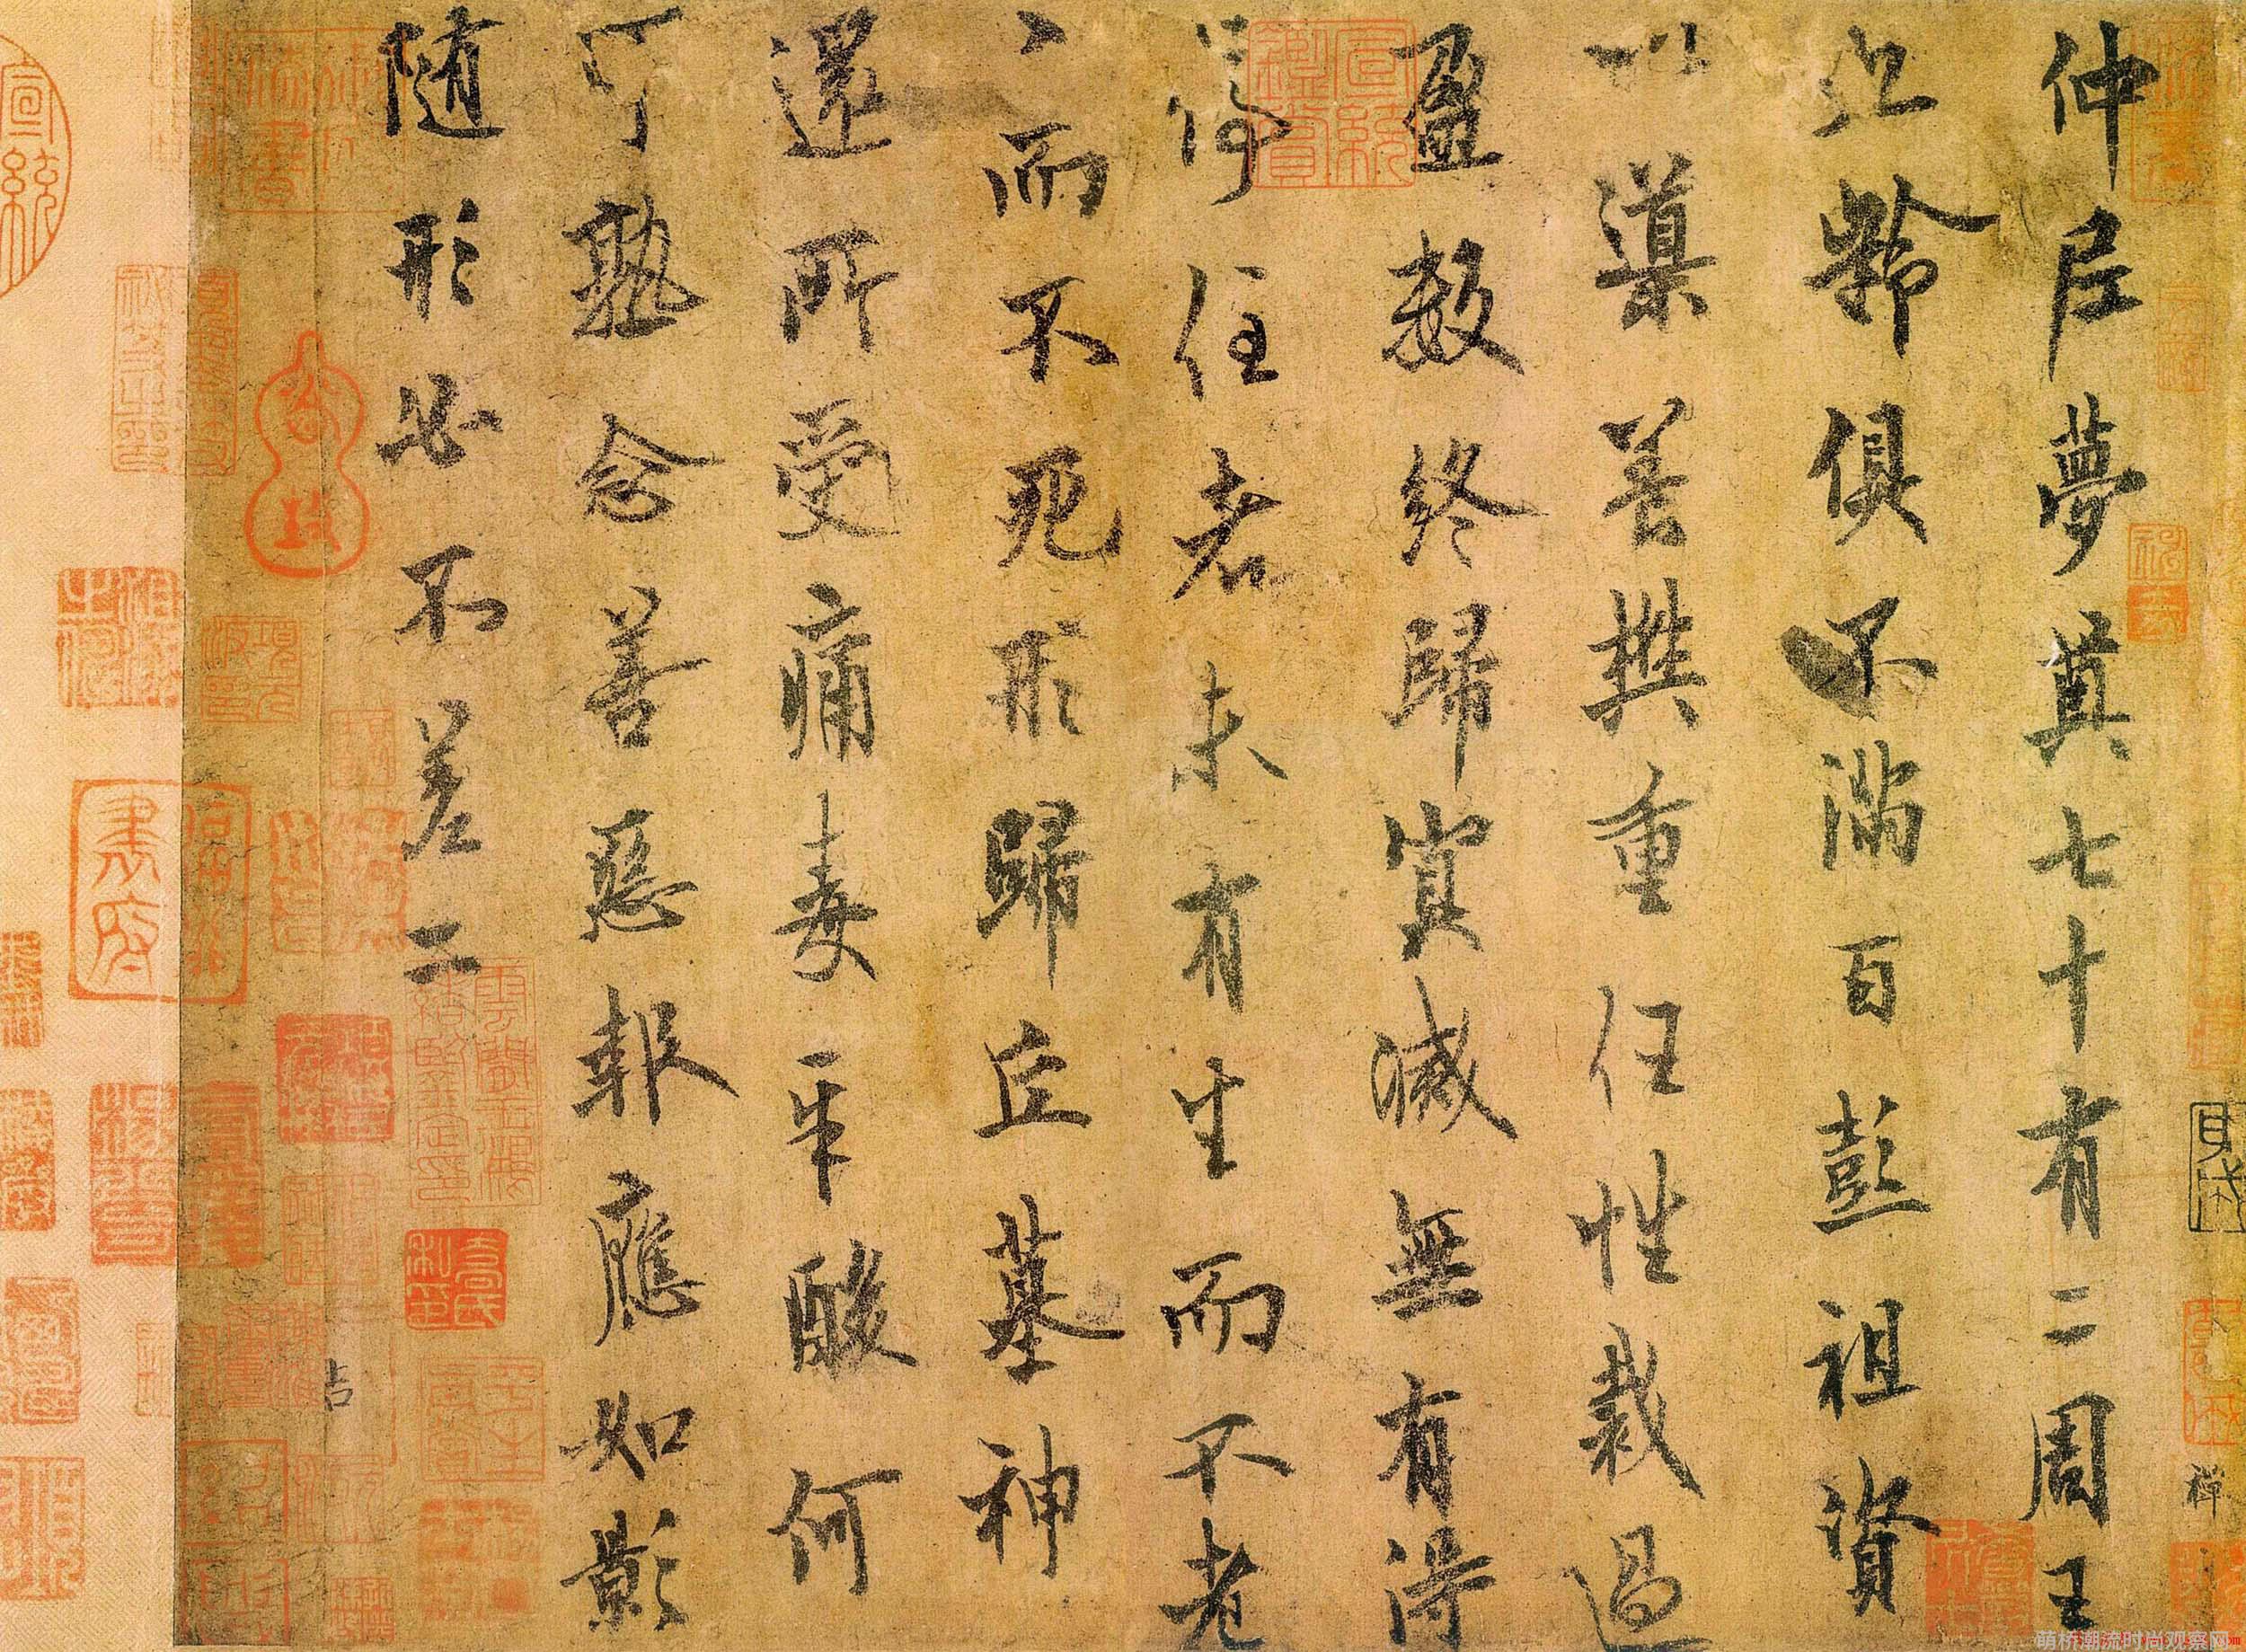 仲尼夢奠七十有二周王
九齡俱不滿百彭祖資
以導養樊重任性裁過
盈數終歸冥滅無有得
停住者未有生而不老
々而不死形歸丘墓神
還所受痛毒辛酸何
可熟念善惡報應如影
隨形必不差二
宣統鑒賞
萌桥潮流时尚观察网